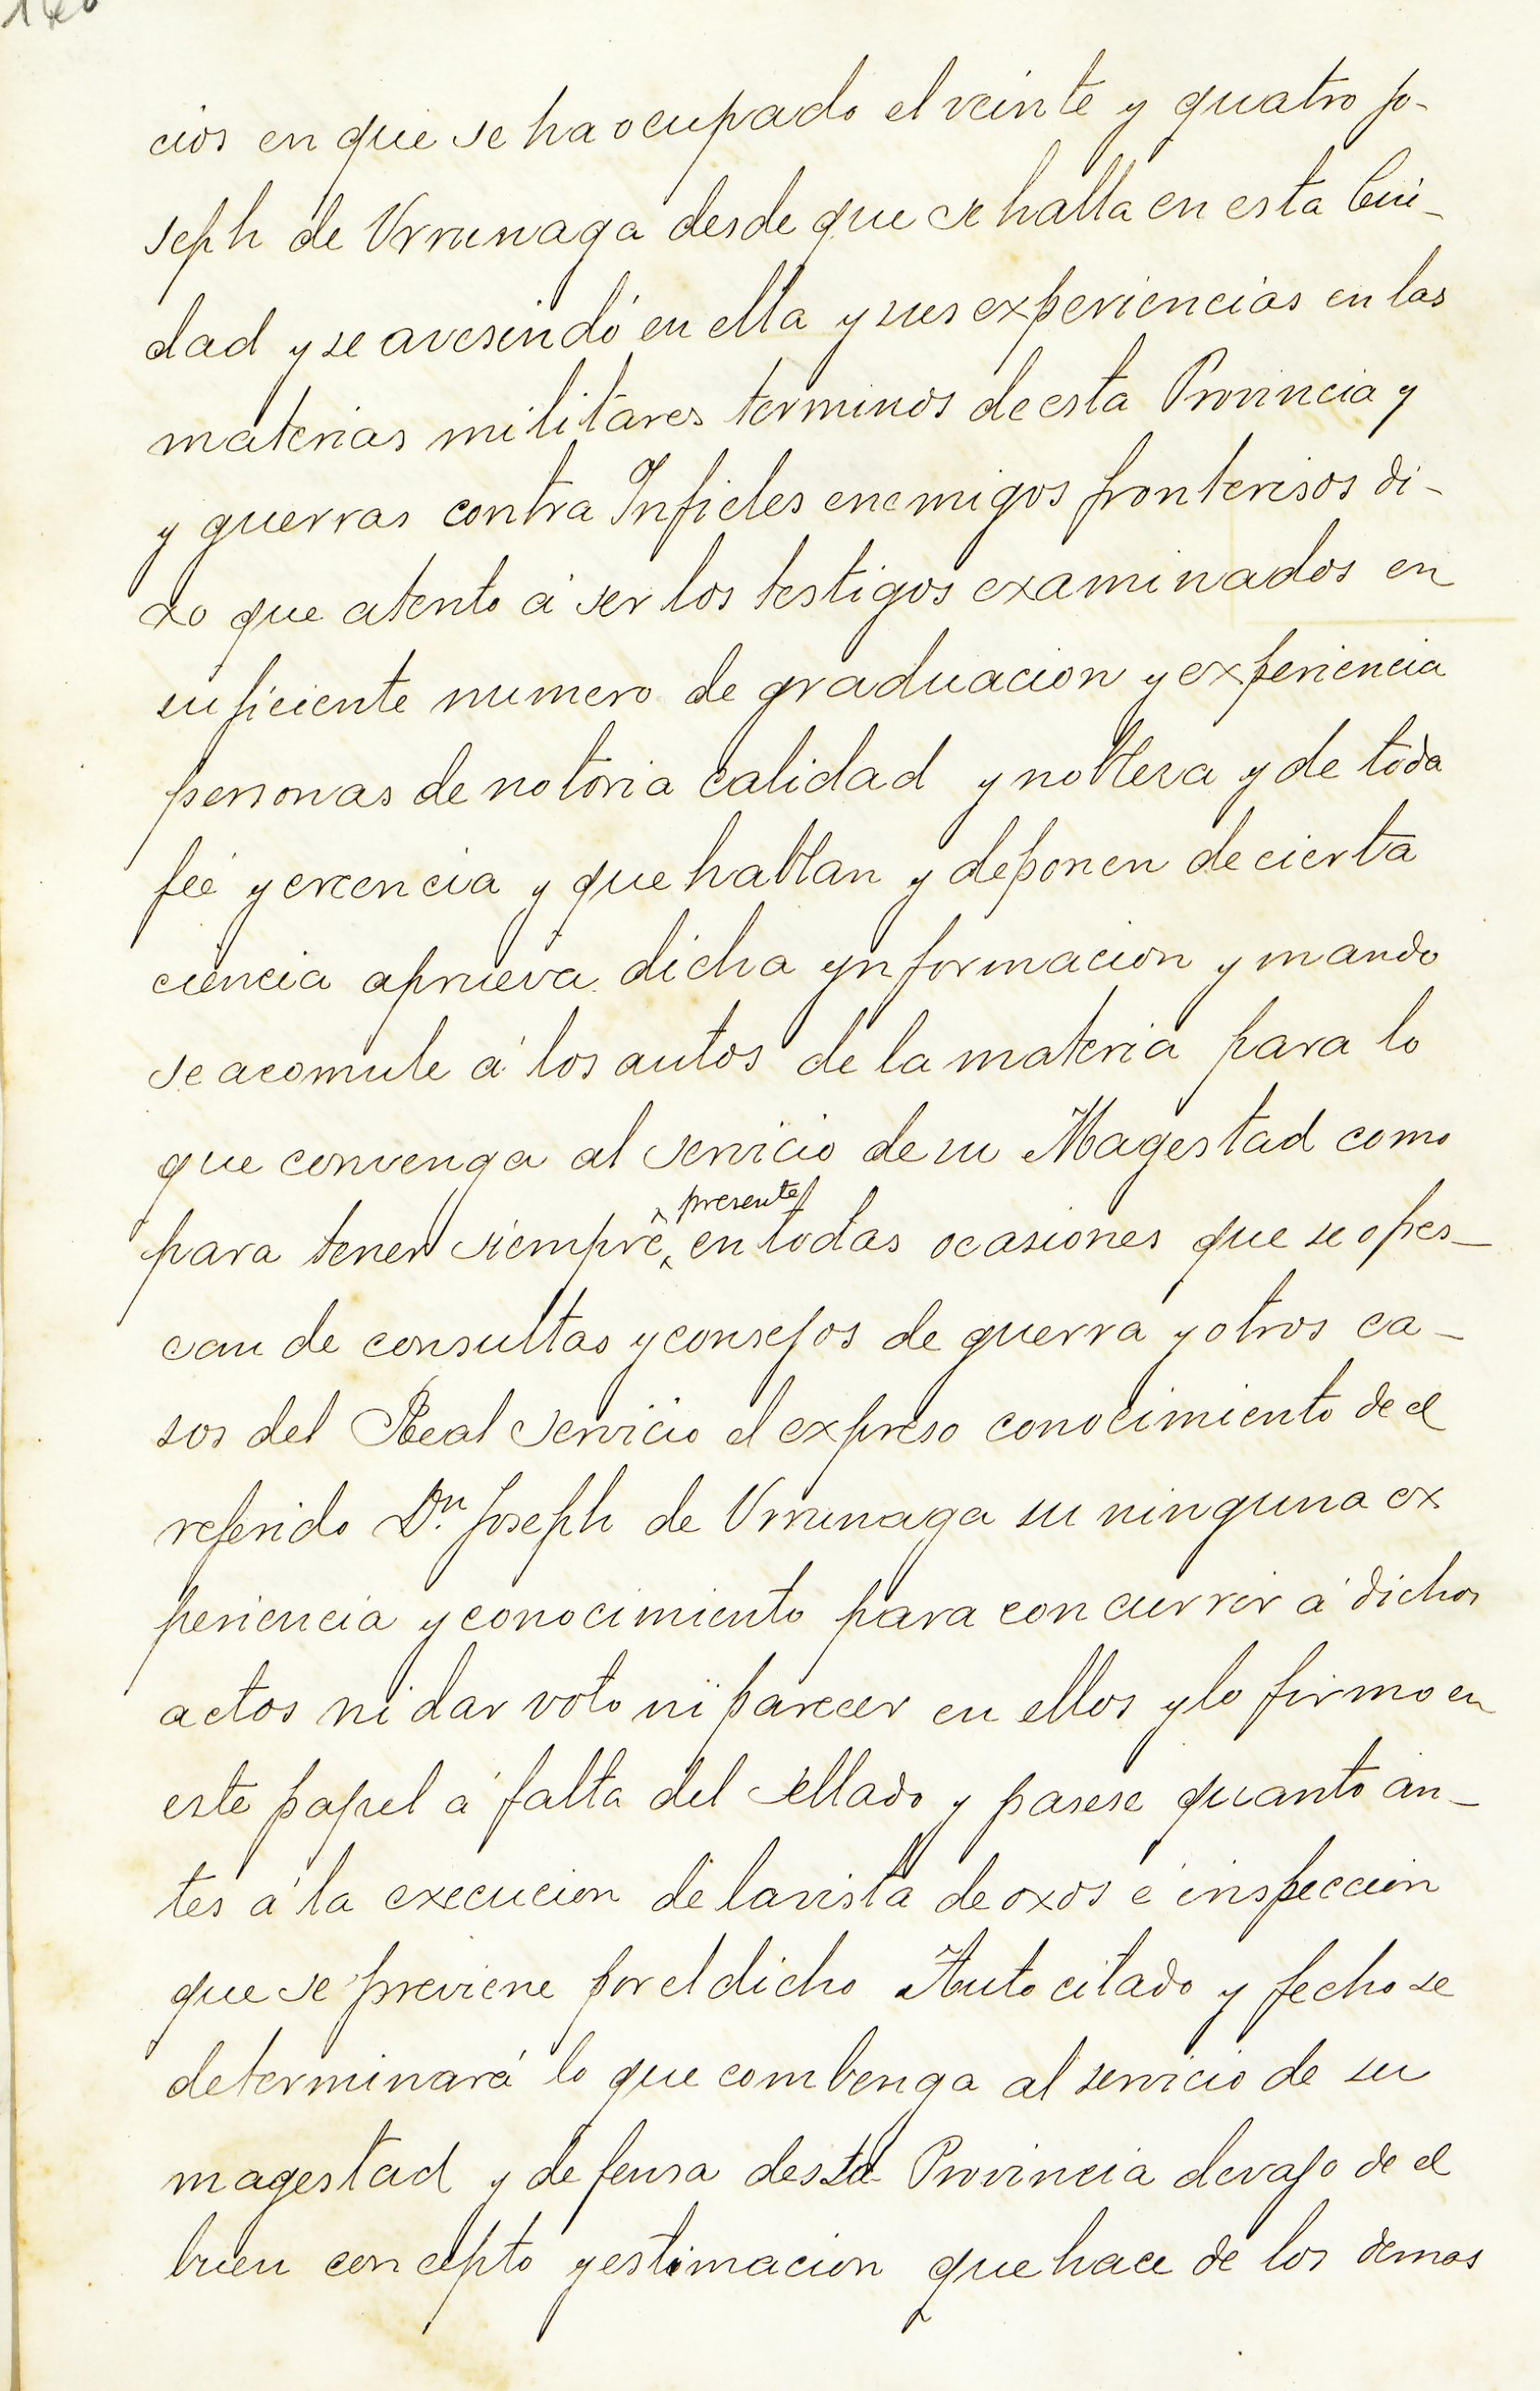 cios en que se ha ocupado el veinte y quatro Jo-
seph de Vrrunaga desde que se halla en esta Ciu-
dad y se avesindó en ella y sus experiencias en las
materias militares terminos de esta Provincia y
y guerras contra Infieles enemigos fronterisos di-
xo que atento á ser los testigos examinados en
suficiente numero de graduacion y experiencia
personas de notoria calidad y nobleza y de toda
feé y creencia y que hablan y deponen de cierta
ciencia aprueva dicha ynformacion y mando
se acomule á los autos de la materia para lo
que convenga al servicio de su Magestad como
presente
para tener siempre en todas ocasiones que se ofres-
can de consultas y consejos de guerra y otros ca-
sos del Real Servicio el expreso conocimiento de el
referido Dn. Joseph de Vrrunaga su ninguna ex
periencia y conocimiento para concurrir á dichos
actos ni dar voto ni parecer en ellos y lo firmo en
este papel á falta del sellado y pasese quanto an-
tes á la execucion de la vista de oxos é inspeccion
que se previene por el dicho Auto citado y fecho se
determinará lo que combenga al servicio de su
magestad y defensa desta Provincia devajo de el
buen concepto y estimacion que hace de los demas